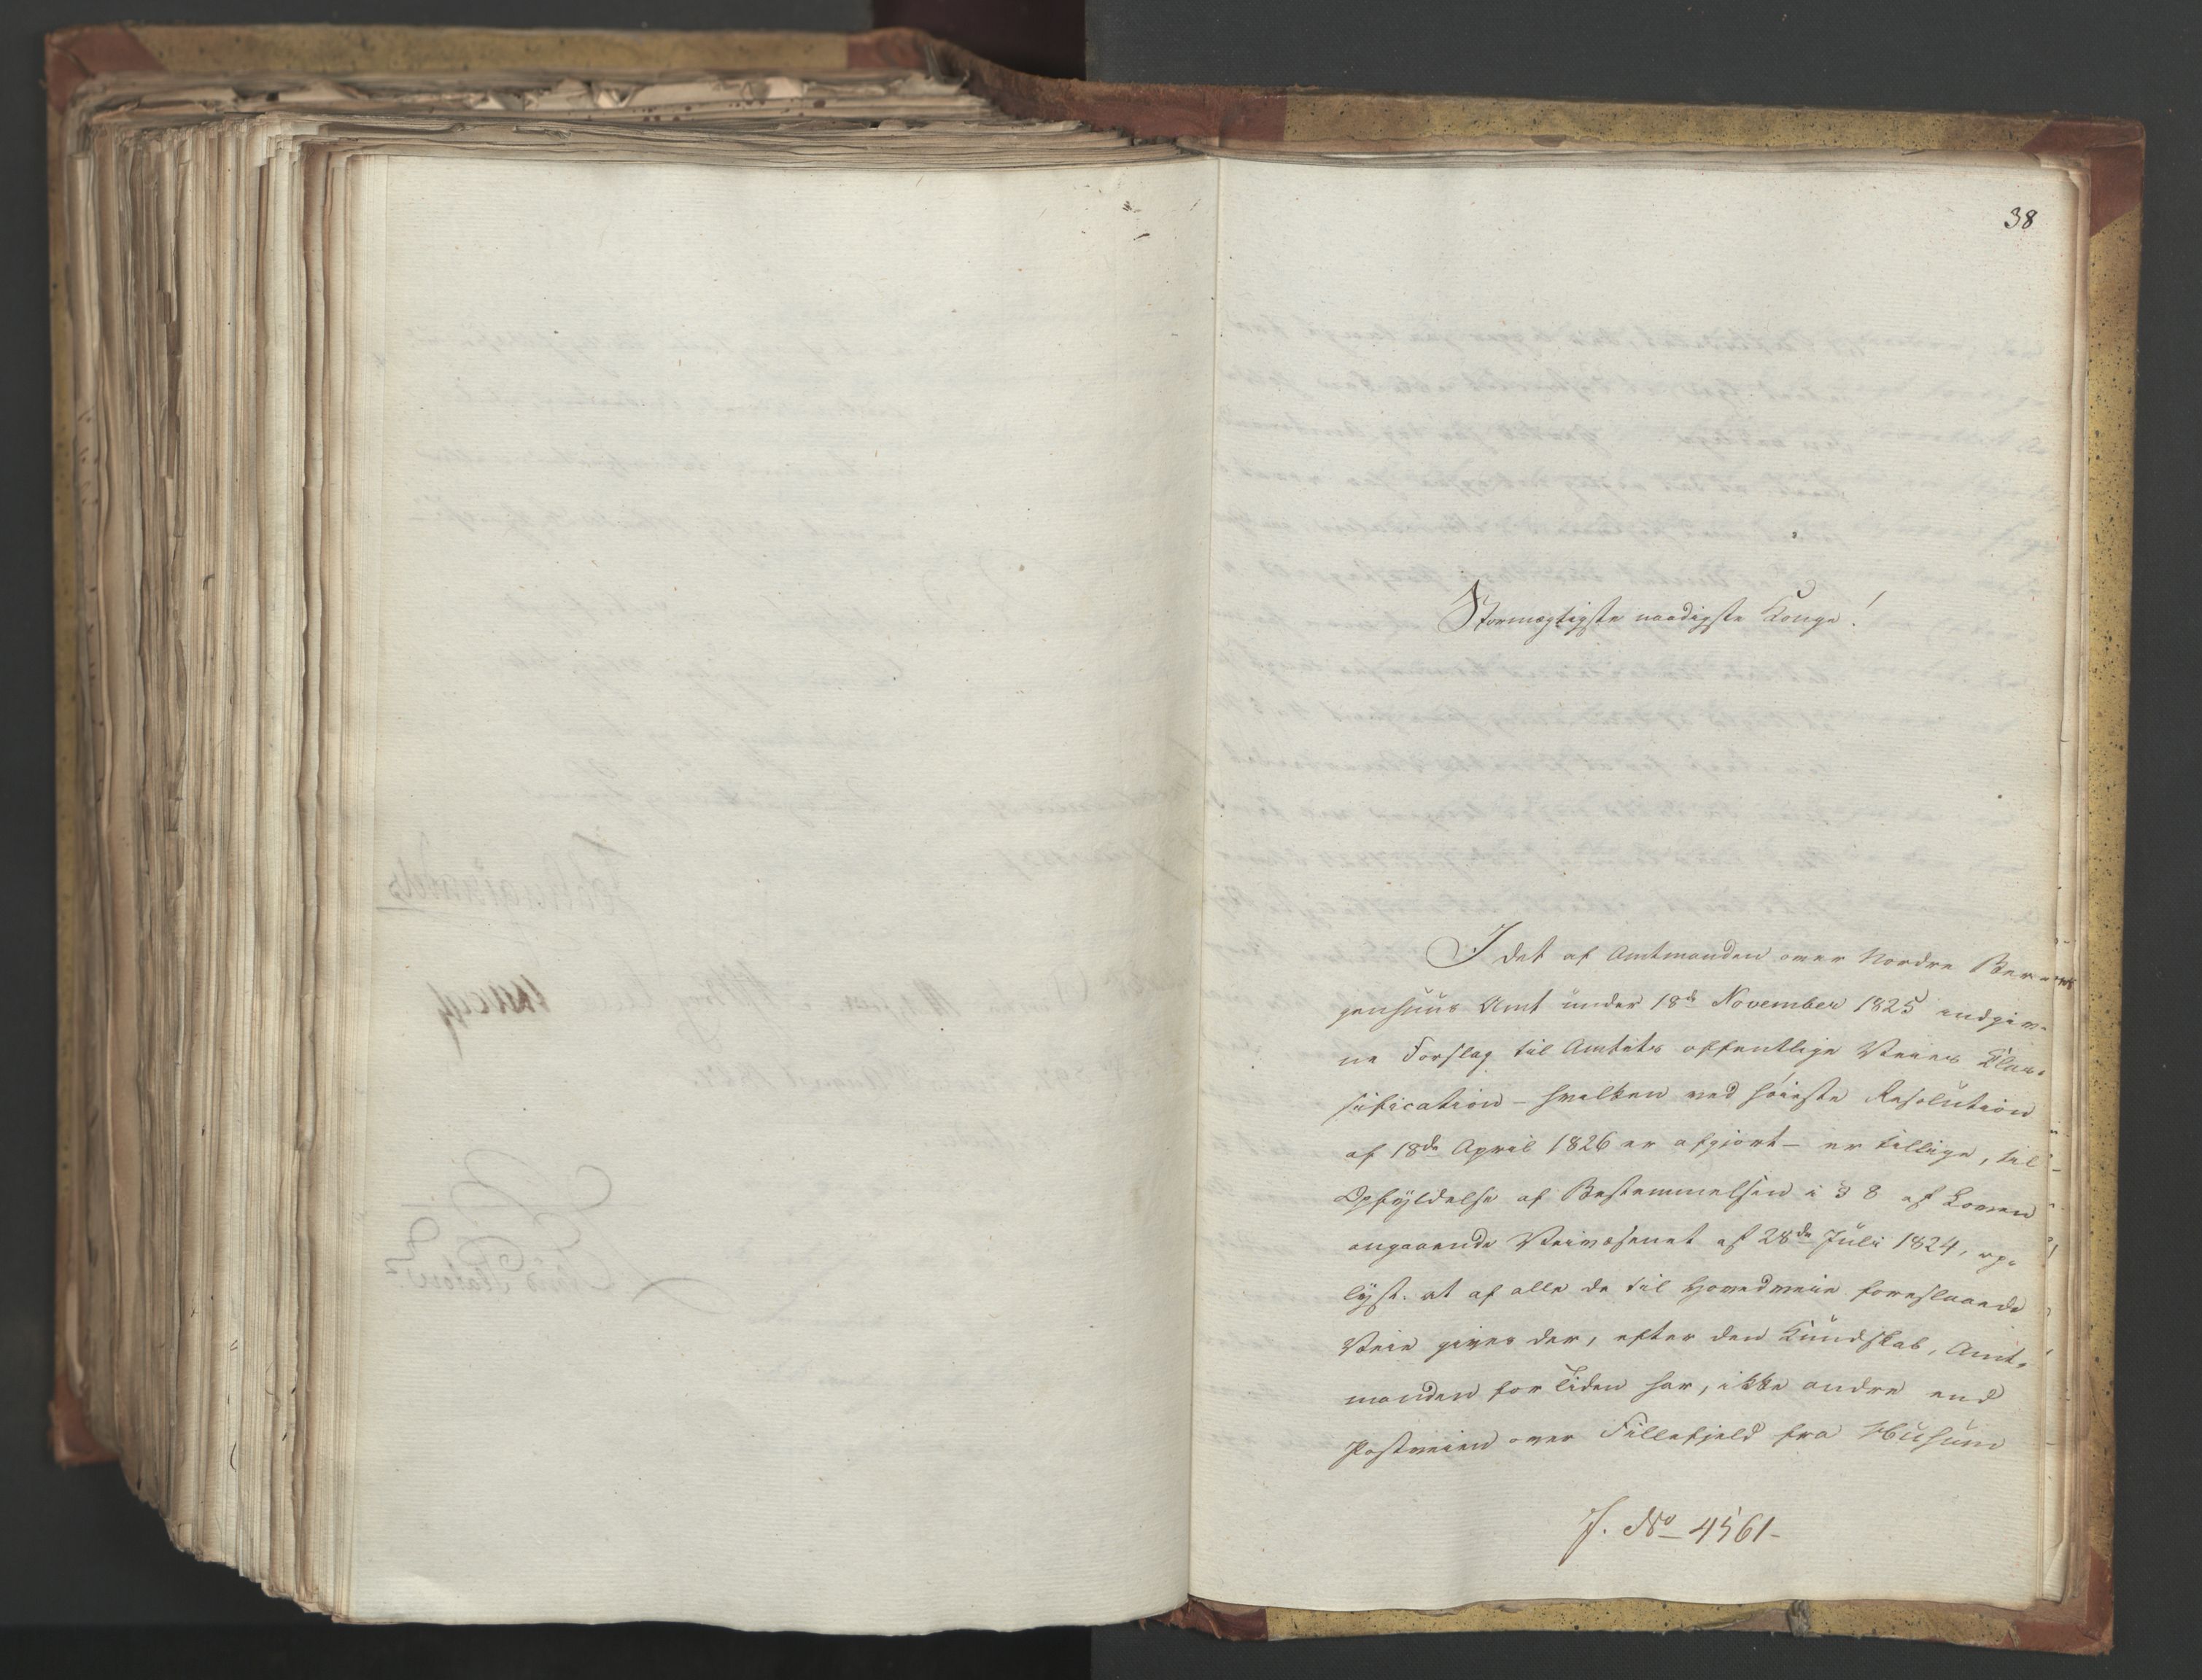 38
Stormægtigste naadigste Konge!
I det af Amtmanden over Nordre Ber-
genhuus Amt under 18de November 1825 indgiv-
ne Forslag til Amtets offentlige Veies Klas-
sification - hvilken ved høieste Resolution
af 18de April 1826 er afgiort - er tillige, til
Opfyldelse af Bestemmelsen i § 8 af Loven
angaaende Veivæsenet af 28de Juli 1824, op-
lyst, at af alle de til Hovedveie foreslaaede
Veie gives der, efter den Kundskab, Amt-
manden for Tiden har, ikke andre end
Postveien over Fillefjeld fra Husum
J. No 4561-